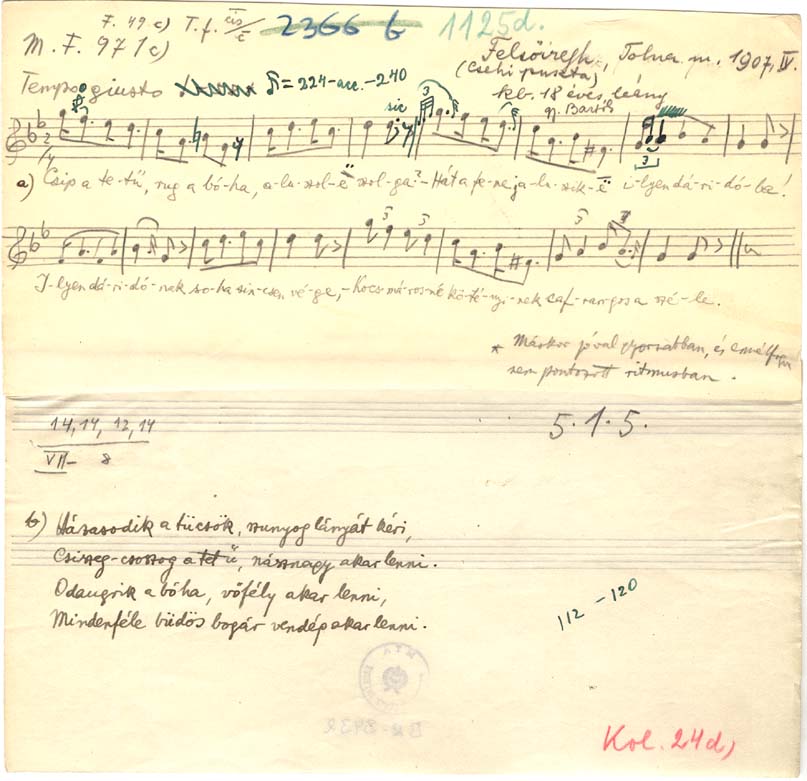 F. 49 c) T. f. cis/e 2366 b 1125d.
M. F. 971c)
Felsőiregh, Tolna m. 1907, IV.
(Csehi puszta)
Tempo giusto ♪ = 224-acc.-240
kb. 18 éves leány
gy. Bartók
sic
3
3
a) Csip a te-tű, rug a bó-ha, a-lu-szol-ë szol-ga? - Hát a fe-ne ja-lu-szik-ë i-lyen dá-ri-dó-ba!
3 3 3
I-lyen dá-ri-dó-nak so-ha sin-csen vé-ge, - Kocs-má-ros-né kö-té-nyi-nek caf-rangos a szé-le.
* Máskor jóval gyorsabban, és
nem pontozott ritmusban.
14, 14, 12, 14
VII- 8
5.1.5.
b) Házasodik a tücsök, szunyog lányát kéri,
Csiszeg-csoszog a tetű, násznagy akar lenni.
Odaugrik a bóha, vőfély akar lenni,
Mindenféle büdös bogár vendég akar lenni.
112 - 120
Kol. 24d)